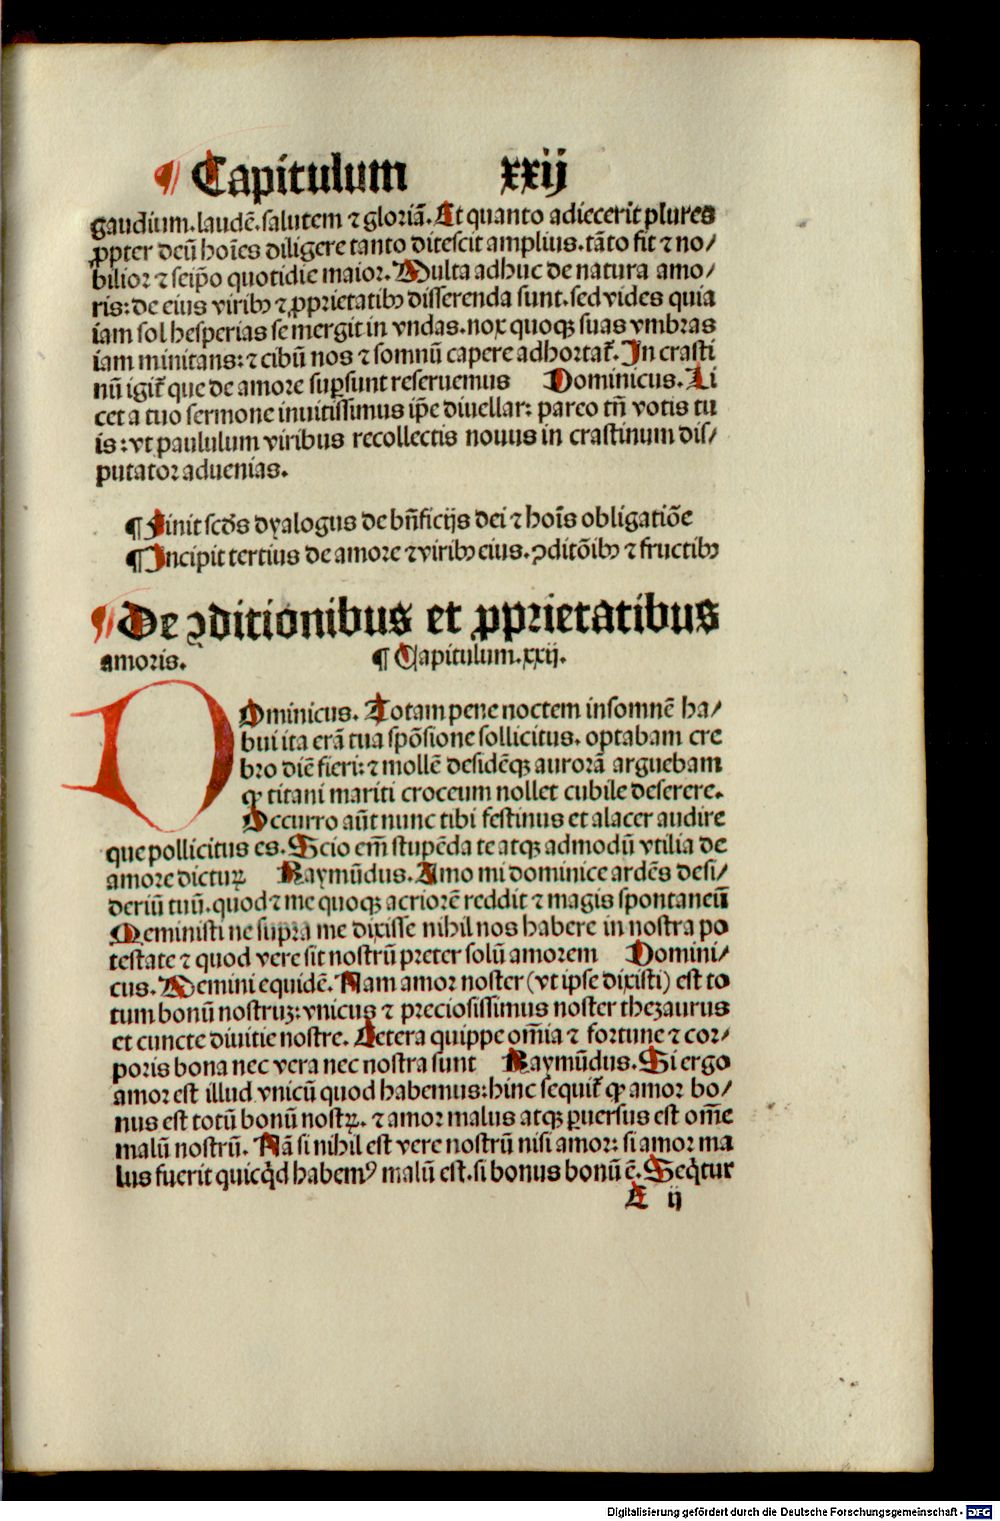 ¶ Capitulum xxij
gaudium.laudē.salutem ⁊ gloriā.At quanto adiecerit plures
ꝓpter deū hoīes diligere tanto ditescit amplius.tāto fit ⁊ no/
bilior ⁊ seip̄o quotidie maior.Multa adhuc de natura amo/
ris:de eius viribꝫ ⁊ ꝓprietatibꝫ disserenda sunt.sed vides quia
iam sol hesperias se mergit in vndas.nox quoqꝫ suas vmbras
iam minitans:⁊ cibū nos ⁊ somnū capere adhortat᷑.In crasti
nū igit᷑ que de amore suꝑsunt reseruemus Dominicus.Li
cet a tuo sermone inuitissimus ip̄e diuellar: pareo tn̄ votis tu
is:vt paululum viribus recollectis nouus in crastinum dis/
putator aduenias.
¶Finit scd̄s dyalogus de bn̄ficijs dei ⁊ hoīs obligatiōe
¶Incipit tertius de amore ⁊ viribꝫ eius.ꝯditōibꝫ ⁊ fructibꝫ
¶De ꝯditionibus et ꝓprietatibus
amoris. ¶Capitulum.xxij.
DOminicus. Totam pene noctem insomnē ha/
bui ita erā tua spōsione sollicitus. optabam cre
bro diē fieri:⁊ mollē desidēqꝫ aurorā arguebam
ꝙ titani mariti croceum nollet cubile deserere.
Occurro aūt nunc tibi festinus et alacer audire
que pollicitus es.Scio em̄ stupēda te atqꝫ admodū vtilia de
amore dicturꝝ Raymūdus.Imo mi dominice ardēs desi/
deriū tuū.quod ⁊ me quoqꝫ acriorē reddit ⁊ magis spontaneū
Meministi ne supra me dixisse nihil nos habere in nostra po
testate ⁊ quod vere sit nostrū preter solū amorem Domini/
cus.Memini equidē.Nam amor noster (vt ipse dixisti) est to
tum bonū nostruꝫ:vnicus ⁊ preciosissimus noster thezaurus
et cuncte diuitie nostre.Cetera quippe om̄ia ⁊ fortune ⁊ cor/
poris bona nec vera nec nostra sunt Raymūdus.Si ergo
amor est illud vnicū quod habemus:hinc sequit᷑ ꝙ amor bo/
nus est totū bonū nostꝝ. ⁊ amor malus atqꝫ ꝑuersus est om̄e
malū nostrū. Nā si nihil est vere nostrū nisi amor: si amor ma
lus fuerit quicq̇d habemꝰ malū est.si bonus bonū ē.Seq̇tur
A ij
Digitalisierung gefördert durch die Deutsche Forschungsgemeinschaft - DFG